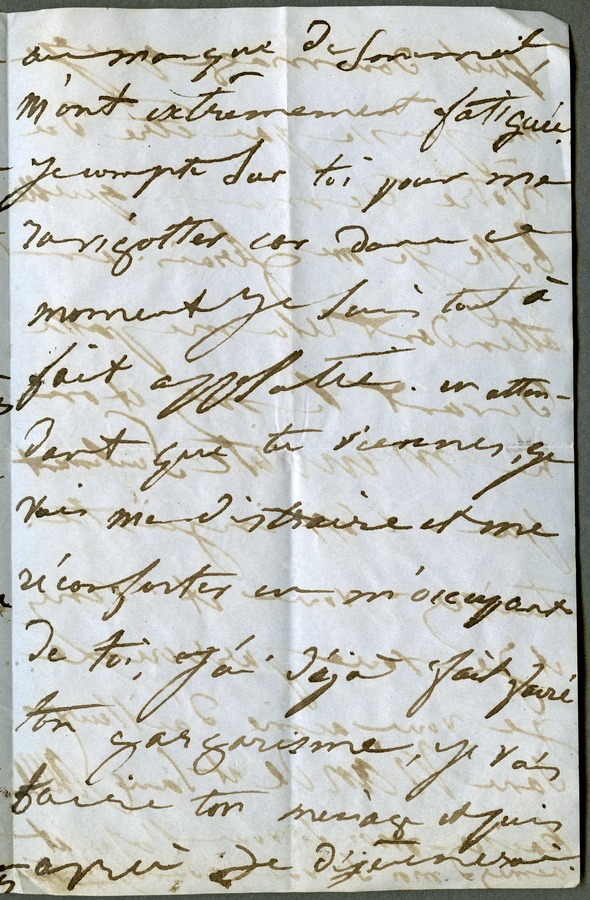 au manque de sommeil
m'ont extrêmement fatiguée.
Je compte sur toi pour me
ravigotter car dans ce
moment je suis tout à
fait applatie. en atten-
dant que tu viennes, je
vais me distraire et me
réconforter en m'occupant
de toi, j'ai déjà fait faire
ton gargarisme, je vais
faire ton ménage et puis
après je déjeunerai.